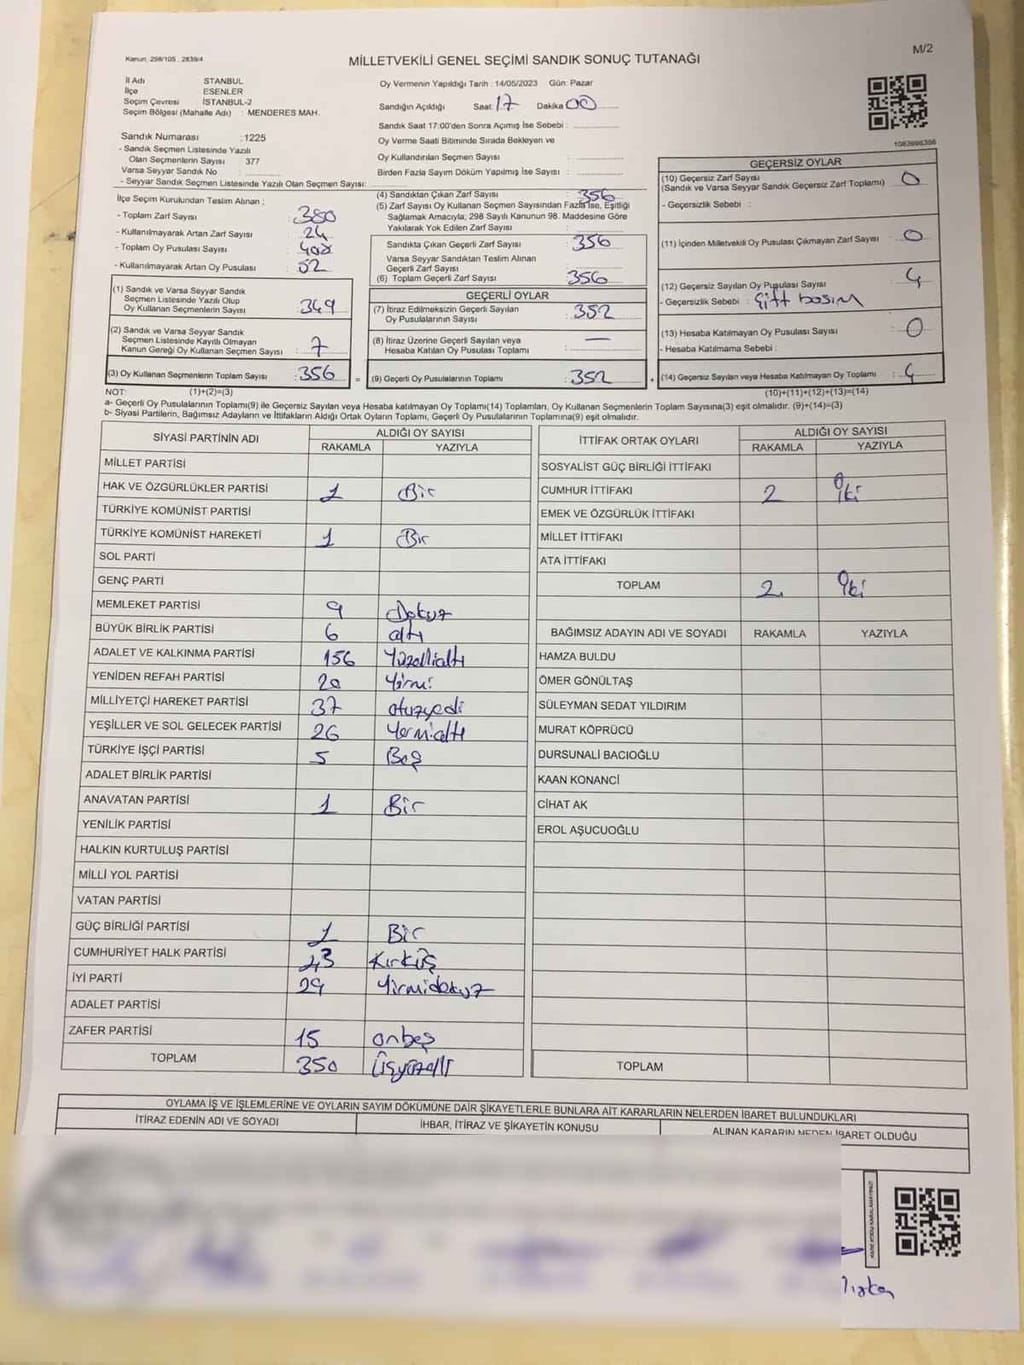 Kanun: 298/105 , 2839/4
M/2
MİLLETVEKİLİ GENEL SEÇİMİ SANDIK SONUÇ TUTANAĞI
İl Adı STANBUL
İlçe ESENLER
Seçim Çevresi İSTANBUL-2
Seçim Bölgesi (Mahalle Adı) : MENDERES MAH.
Sandık Numarası : 1225
- Sandık Seçmen Listesinde Yazılı
Olan Seçmenlerin Sayısı 377
Varsa Seyyar Sandık No :
- Seyyar Sandık Seçmen Listesinde Yazılı Olan Seçmen Sayısı:
Oy Vermenin Yapıldığı Tarih : 14/05/2023 Gün: Pazar
Sandığın Açıldığı Saat: 17 Dakika 00
Sandık Saat 17:00'den Sonra Açımış İse Sebebi :
Oy Verme Saati Bitiminde Sırada Bekleyen ve
Oy Kullandırılan Seçmen Sayısı :
Birden Fazla Sayım Döküm Yapılmış İse Sayısı :
İlçe Seçim Kurulundan Teslim Alınan ;
- Toplam Zarf Sayısı : 380
- Kullanılmayarak Artan Zarf Sayısı : 24
- Toplam Oy Pusulası Sayısı : 408
- Kullanılmayarak Artan Oy Pusulası : 52
(1) Sandık ve Varsa Seyyar Sandık
Seçmen Listesinde Yazılı Olup
Oy Kullanan Seçmenlerin Sayısı : 349
(2) Sandık ve Varsa Seyyar Sandık
Seçmen Listesinde Kayıtlı Olmayan
Kanun Gereği Oy Kullanan Seçmen Sayısı : 7
(3) Oy Kullanan Seçmenlerin Toplam Sayısı : 356
(4) Sandıktan Çıkan Zarf Sayısı : 356
(5) Zarf Sayısı Oy Kullanan Seçmen Sayısından Fazla İse, Eşitliği
Sağlamak Amacıyla; 298 Sayılı Kanunun 98. Maddesine Göre
Yakılarak Yok Edilen Zarf Sayısı :
Sandıkta Çıkan Geçerli Zarf Sayısı : 356
Varsa Seyyar Sandıktan Teslim Alınan
Geçerli Zarf Sayısı
(6) Toplam Geçerli Zarf Sayısı : 356
GEÇERLİ OYLAR
(7) İtiraz Edilmeksizin Geçerli Sayılan
Oy Pusulalarının Sayısı : 352
(8) İtiraz Üzerine Geçerli Sayılan veya
Hesaba Katılan Oy Pusulası Toplamı : —
= (9) Geçerli Oy Pusulalarının Toplamı : 352
1083698306
GEÇERSİZ OYLAR
(10) Geçersiz Zarf Sayısı
(Sandık ve Varsa Seyyar Sandık Geçersiz Zarf Toplamı) : 0
- Geçersizlik Sebebi :
(11) İçinden Milletvekili Oy Pusulası Çıkmayan Zarf Sayısı : 0
(12) Geçersiz Sayılan Oy Pusulası Sayısı : 4
- Geçersizlik Sebebi : Çift basım
(13) Hesaba Katılmayan Oy Pusulası Sayısı : 0
- Hesaba Katılmama Sebebi :
+ (14) Geçersiz Sayılan veya Hesaba Katılmayan Oy Toplamı : 4
NOT: (1)+(2)=(3) (10)+(11)+(12)+(13)=(14)
a- Geçerli Oy Pusulalarının Toplamı(9) ile Geçersiz Sayılan veya Hesaba katılmayan Oy Toplamı(14) Toplamları, Oy Kullanan Seçmenlerin Toplam Sayısına(3) eşit olmalıdır. (9)+(14)=(3)
b- Siyasi Partilerin, Bağımsız Adayların ve İttifakların Aldığı Ortak Oyların Toplamı, Geçerli Oy Pusulalarının Toplamına(9) eşit olmalıdır.
SİYASİ PARTİNİN ADI ALDIĞI OY SAYISI
RAKAMLA YAZIYLA
MİLLET PARTİSİ
HAK VE ÖZGÜRLÜKLER PARTİSİ 1 Bir
TÜRKİYE KOMÜNİST PARTİSİ
TÜRKİYE KOMÜNİST HAREKETİ 1 Bir
SOL PARTİ
GENÇ PARTİ
MEMLEKET PARTİSİ 9 Dokuz
BÜYÜK BİRLİK PARTİSİ 6 altı
ADALET VE KALKINMA PARTİSİ 156 Yüzellialtı
YENİDEN REFAH PARTİSİ 20 Yirmi
MİLLİYETÇİ HAREKET PARTİSİ 37 otuzyedi
YEŞİLLER VE SOL GELECEK PARTİSİ 26 Yermialtı
TÜRKİYE İŞÇİ PARTİSİ 5 Beş
ADALET BİRLİK PARTİSİ
ANAVATAN PARTİSİ 1 Bir
YENİLİK PARTİSİ
HALKIN KURTULUŞ PARTİSİ
MİLLİ YOL PARTİSİ
VATAN PARTİSİ
GÜÇ BİRLİĞİ PARTİSİ 1 Bir
CUMHURİYET HALK PARTİSİ 43 Kırküş
İYİ PARTİ 29 Yirmidokuz
ADALET PARTİSİ
ZAFER PARTİSİ 15 onbeş
TOPLAM 350 Üşyüzelli
İTTİFAK ORTAK OYLARI ALDIĞI OY SAYISI
RAKAMLA YAZIYLA
SOSYALİST GÜÇ BİRLİĞİ İTTİFAKI
CUMHUR İTTİFAKI 2 İki
EMEK VE ÖZGÜRLÜK İTTİFAKI
MİLLET İTTİFAKI
ATA İTTİFAKI
TOPLAM 2 İki
BAĞIMSIZ ADAYIN ADI VE SOYADI RAKAMLA YAZIYLA
HAMZA BULDU
ÖMER GÖNÜLTAŞ
SÜLEYMAN SEDAT YILDIRIM
MURAT KÖPRÜCÜ
DURSUNALİ BACIOĞLU
KAAN KONANCİ
CİHAT AK
EROL AŞUCUOĞLU
TOPLAM
OYLAMA İŞ VE İŞLEMLERİNE VE OYLARIN SAYIM DÖKÜMÜNE DAİR ŞİKAYETLERLE BUNLARA AİT KARARLARIN NELERDEN İBARET BULUNDUKLARI
İTİRAZ EDENİN ADI VE SOYADI İHBAR, İTİRAZ VE ŞİKAYETİN KONUSU ALINAN KARARIN NEDEN İBARET OLDUĞU